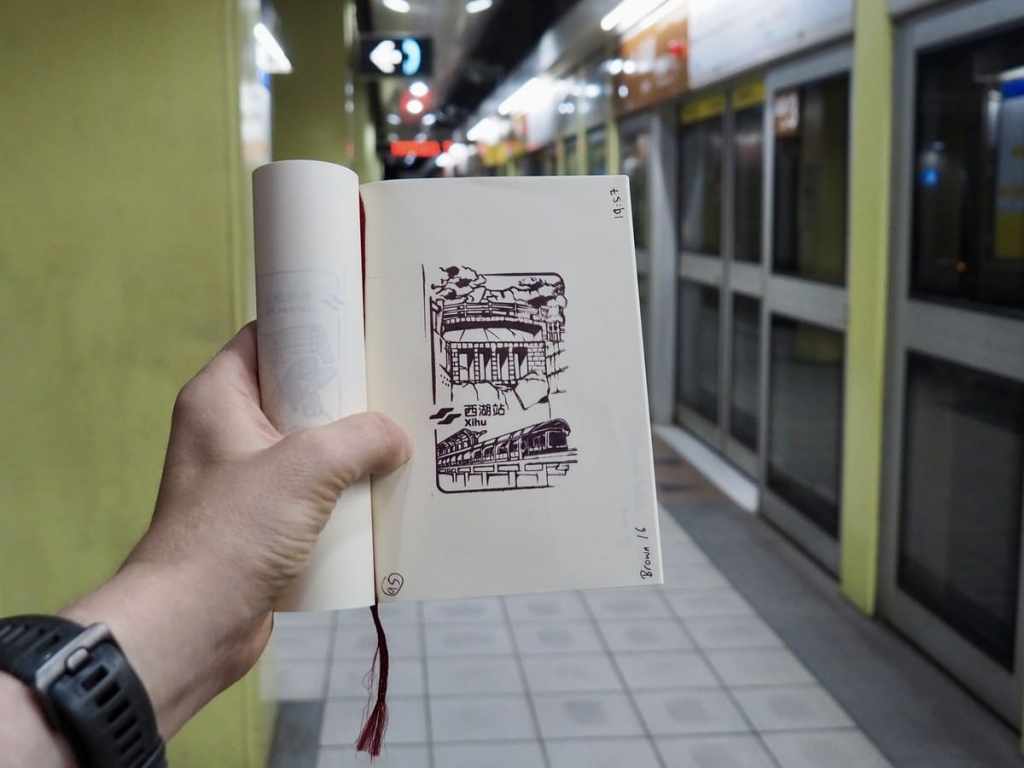 19:57
西湖站
Xihu
Brown 16
50